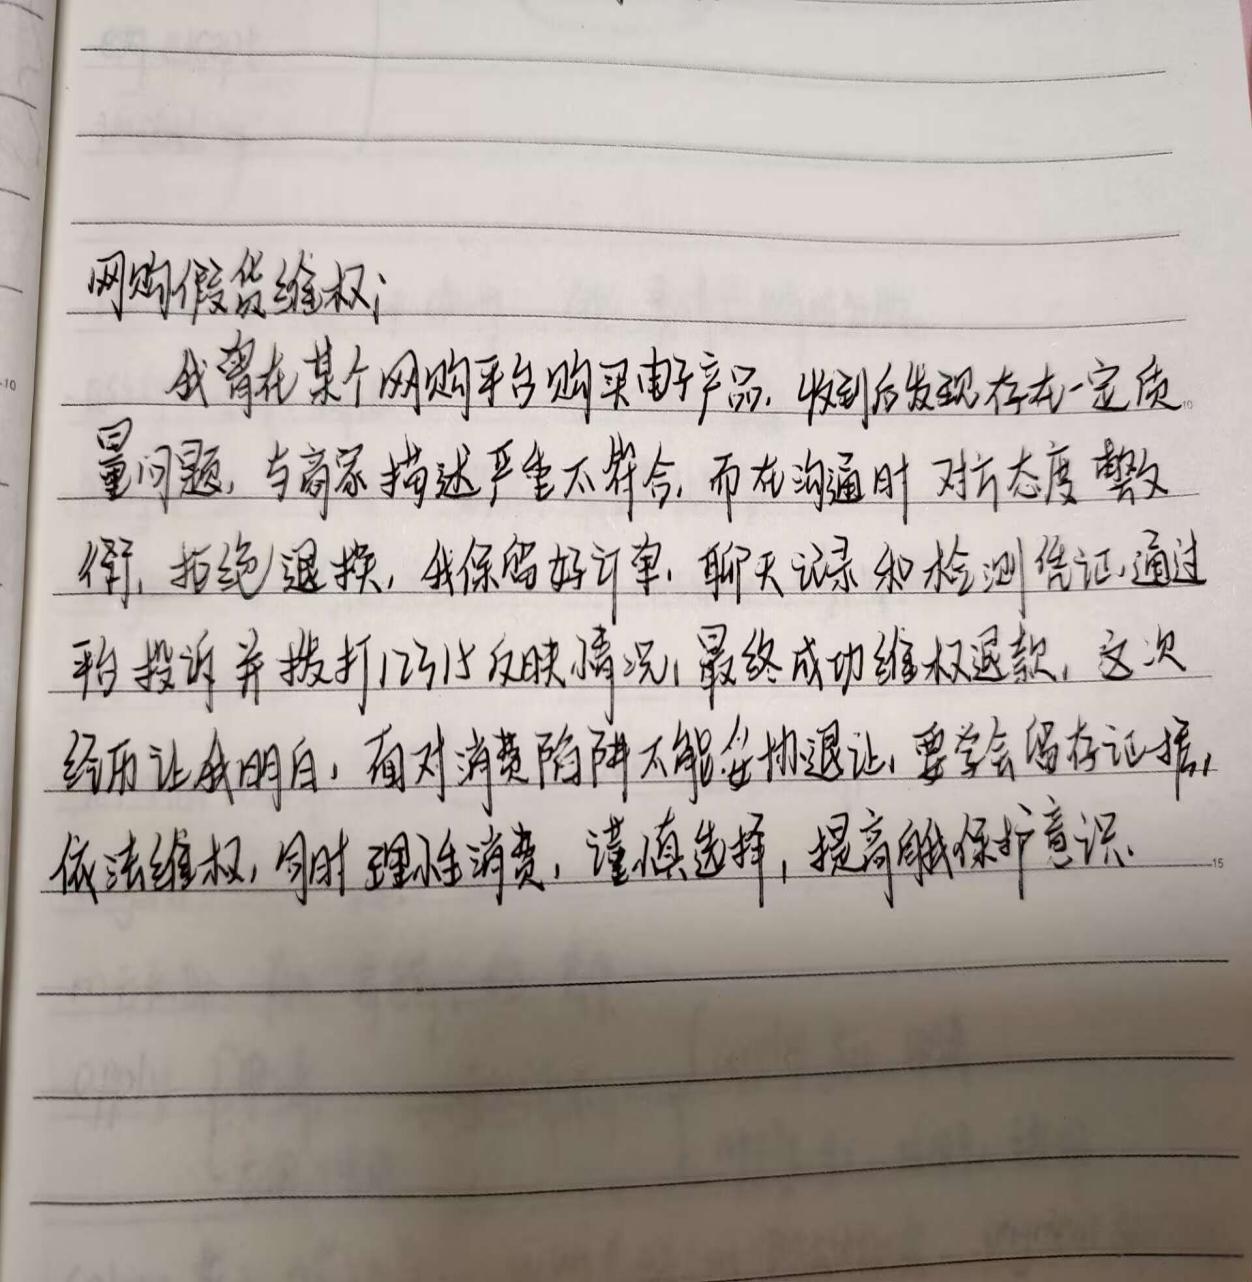 网购假货维权；
我曾在某个网购平台购买电子产品，收到后发现存在一定质
量问题，与商家描述严重不符合，而在沟通时对方态度敷
衍，拒绝退换，我保留好订单，聊天记录和检测凭证，通过
平台投诉并拨打12315反映情况，最终成功维权退款，这次
经历让我明白，面对消费陷阱不能妥协退让，要学会留存证据，
依法维权，同时理性消费，谨慎选择，提高自我保护意识。
10
10
15